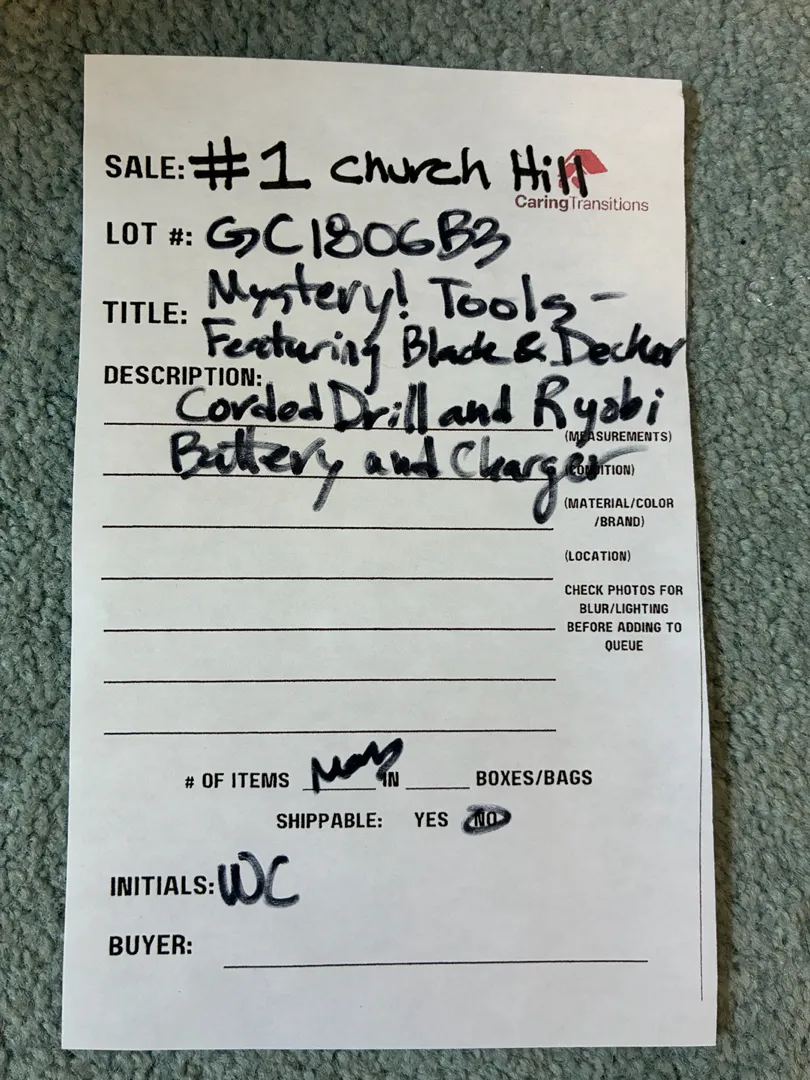 SALE: #1 Church Hill
CaringTransitions
LOT #: GC1806B3
TITLE: Mystery! Tools -
Featuring Black & Decker
DESCRIPTION:
Corded Drill and Ryobi
(MEASUREMENTS)
Battery and Charger
(CONDITION)
(MATERIAL/COLOR
/BRAND)
(LOCATION)
CHECK PHOTOS FOR
BLUR/LIGHTING
BEFORE ADDING TO
QUEUE
# OF ITEMS Many IN BOXES/BAGS
SHIPPABLE: YES NO
INITIALS: WC
BUYER: